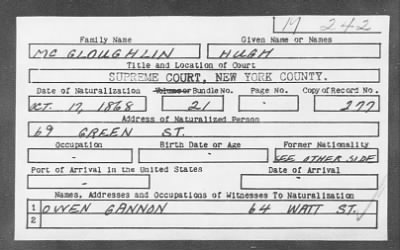 M 242
Family Name Given Name or Names
McGLOUGHLIN HUGH
Title and Location of Court
SUPREME COURT, NEW YORK COUNTY.
Date of Naturalization Volume or Bundle No. Page No. Copy of Record No.
OCT. 17, 1868 21 - 277
Address of Naturalized Person
69 GREEN ST.
Occupation Birth Date or Age Former Nationality
- - SEE OTHER SIDE
Port of Arrival in the United States Date of Arrival
- -
Names, Addresses and Occupations of Witnesses To Naturalization
1 OWEN GANNON 64 WATT ST.
2